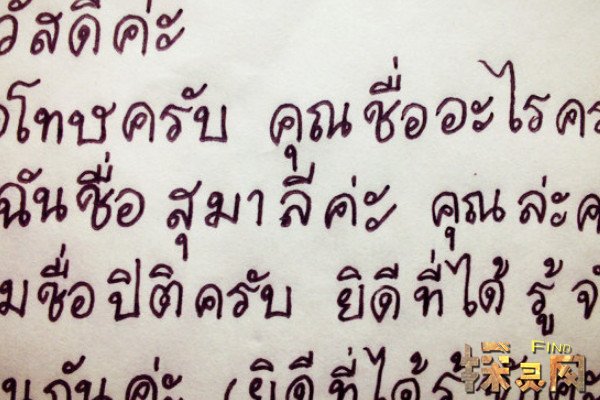 วัสดีค่ะ
โทษครับ คุณชื่ออะไรคร
ฉันชื่อ สุมาลีค่ะ คุณล่ะค
มชื่อปิติครับ ยิดีที่ได้ รู้จั
นกันค่ะ ยิดีที่ได้รู้
FIND
探灵网